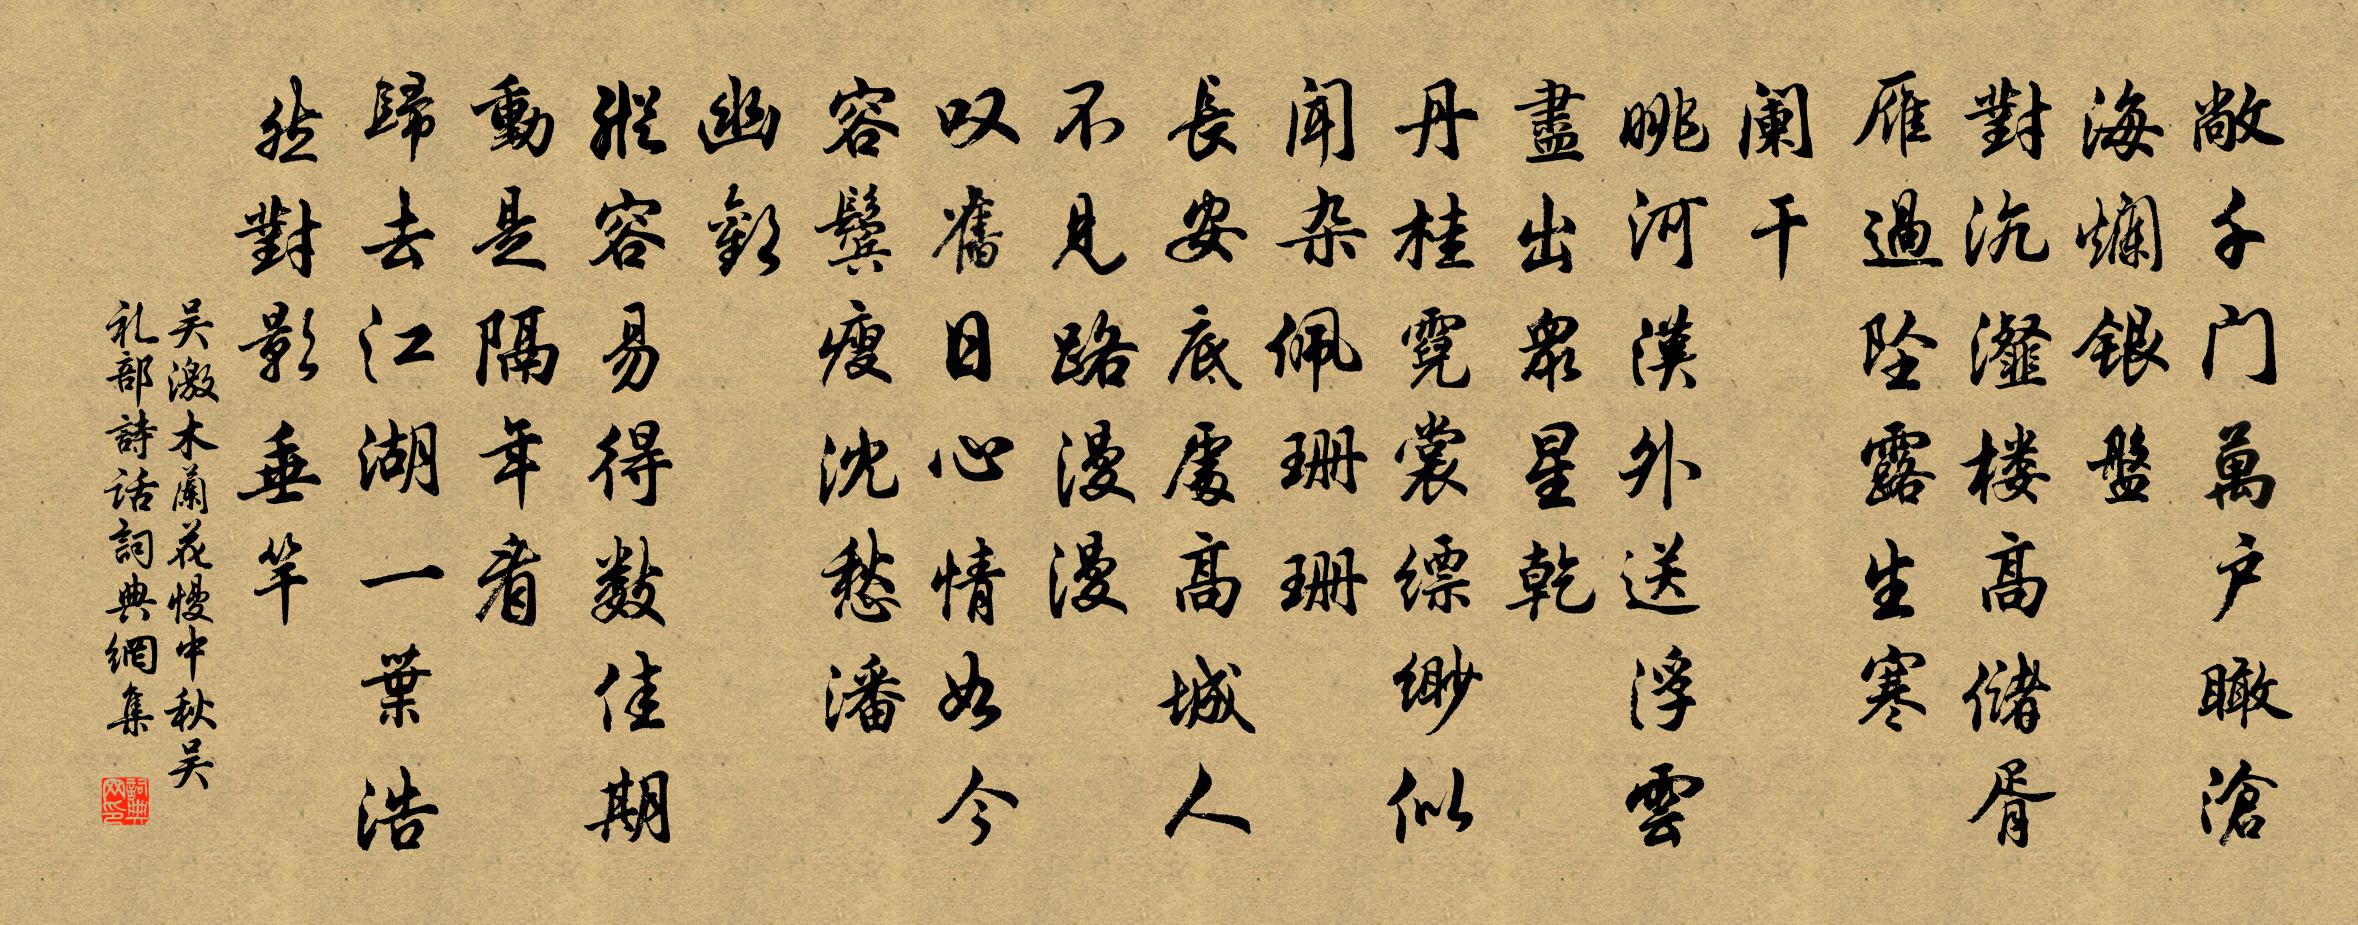 敞千门萬户瞰滄
海爛銀盤
對沆瀣楼高儲胥
雁過墜露生寒
阑干
眺河漢外送浮雲
盡出眾星乾
丹桂霓裳缥缈似
闻杂佩珊珊
長安底處高城人
不見路漫漫
叹舊日心情如今
容鬓瘦沈愁潘
幽歡
縱容易得数佳期
動是隔年看
歸去江湖一葉浩
然對影垂竿
吴激木蘭花慢中秋吴
礼部詩话詞典網集
詞典网印